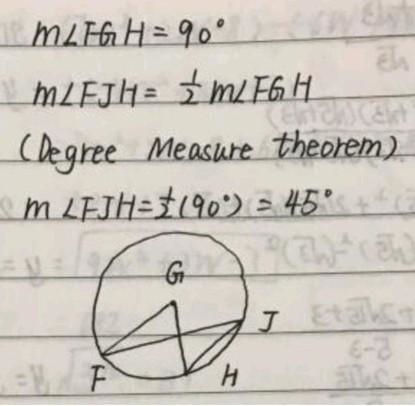 m∠FGH = 90°
m∠FJH = ½ m∠FGH
(Degree Measure theorem)
m∠FJH = ½(90°) = 45°
G
J
F
H